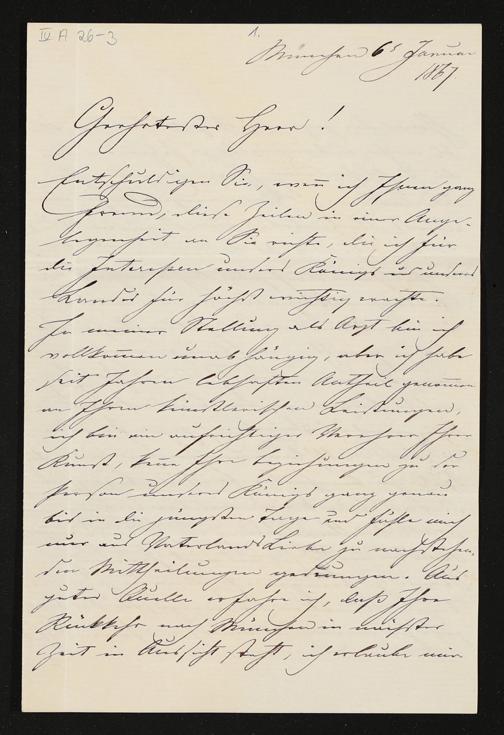 IV A 26-3
1.
München 6ṭ Januar
1867
Geehrtester Herr!
Entschuldigen Sie, weñ ich Ihnen ganz
fremd, diese Zeilen in einer Ange-
legenheit an Sie richte, die ich für
die Interessen unsers Königs und unsers
Landes für höchst wichtig erachte.
In meiner Stellung als Arzt bin ich
vollkom̃en unabhängig, aber ich habe
seit Jahren lebhaften Antheil genom̃en
an Ihren künstlerischen Leistungen,
ich bin ein aufrichtiger Verehrer Ihrer
Kunst, keñe Ihre Beziehungen zu der
Person unseres Königs ganz genau
bis in die jüngsten Tage und fühle mich
nur aus Vaterlands Liebe zu nachstehen-
den Mittheilungen gedrungen. Aus
guter Quelle erfahre ich, daß Ihre
Rückkehr nach München in nächster
Zeit in Aussicht steht, ich erlaube mir